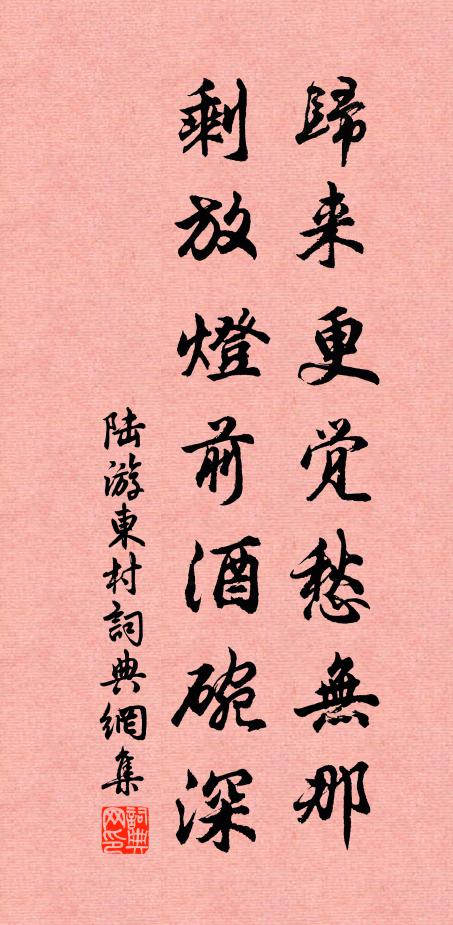 歸来更覺愁無那
剩放燈前酒碗深
陆游東村詞典網集
詞典网印